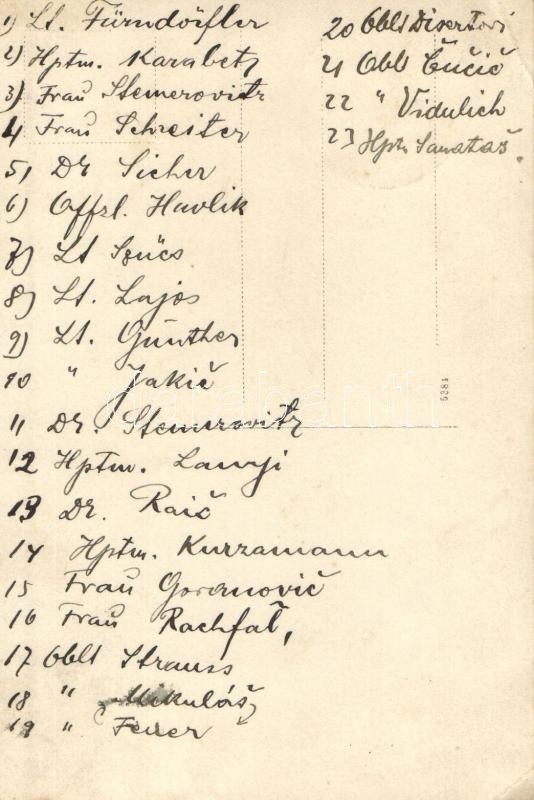 1) Lt. Fürndörfler
2) Hptm. Karabetz
3) Frau Stemerovitz
4 Frau Schreiter
5, Dr Sicher
6) Offzl. Havlik
7) Lt Szücs
8) Lt. Lajos
9) Lt. Günther
10 " Jakič
11 Dr. Stemerovitz
12 Hptm.
13 Dr. Raič
14 Hptm. Kurzamann
15 Frau Goranovič
16 Frau Rachfał,
17 Oblt Strauss
18 " Mikuláš
19 " Feuer
20 Oblt Disertori
21 Obl Čučič
22 " Vidulich
23 Hptm
5381
darabanth